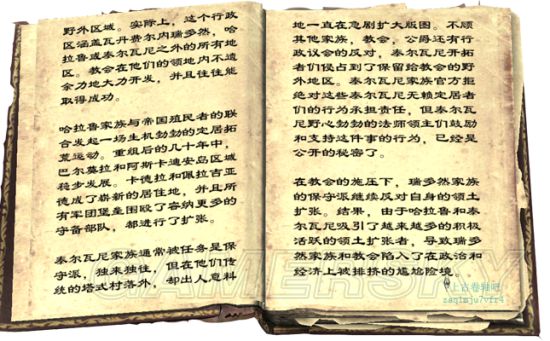 野外区域。实际上，这个行政
区涵盖瓦丹费尔内瑞多然，哈
拉鲁或泰尔瓦尼之外的所有地
区。教会在他们的领地内不遗
余力地大力开发，并且往往能
取得成功。
哈拉鲁家族与帝国殖民者的联
合发起一场生机勃勃的定居拓
荒运动。重组后的几十年中，
巴尔莫拉和阿斯卡迪安岛区域
稳步发展。卡德拉和佩拉吉亚
德成了崭新的居住地，并且所
有军团堡垒围殴了容纳更多的
守备部队，都进行了扩张。
泰尔瓦尼家族通常被任务是保
守派，独来独往，但在他们传
统的塔式村落外，却出人意料
地一直在急剧扩大版图。不顾
其他家族，教会，公爵还有行
政议会的反对，泰尔瓦尼开拓
者们侵占到了保留给教会的野
外地区。泰尔瓦尼家族官方拒
绝对这些泰尔瓦尼无赖定居者
们的行为承担责任，但泰尔瓦
尼野心勃勃的法师领主们鼓励
和支持这件事的行为，已经是
公开的秘密了。
在教会的施压下，瑞多然家族
的保守派继续反对自身的领土
扩张。结果，由于哈拉鲁和泰
尔瓦尼吸引了越来越多的积极
活跃的领土扩张者，导致瑞多
然家族和教会陷入了在政治和
经济上被排挤的尴尬险境。
GAMERSKY
上古卷轴吧
zaq1mju7vfr4